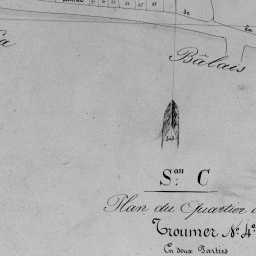 Bâlais
S.on C
Plan du Quartier d
Troumer N.o 4e
En deux Parties